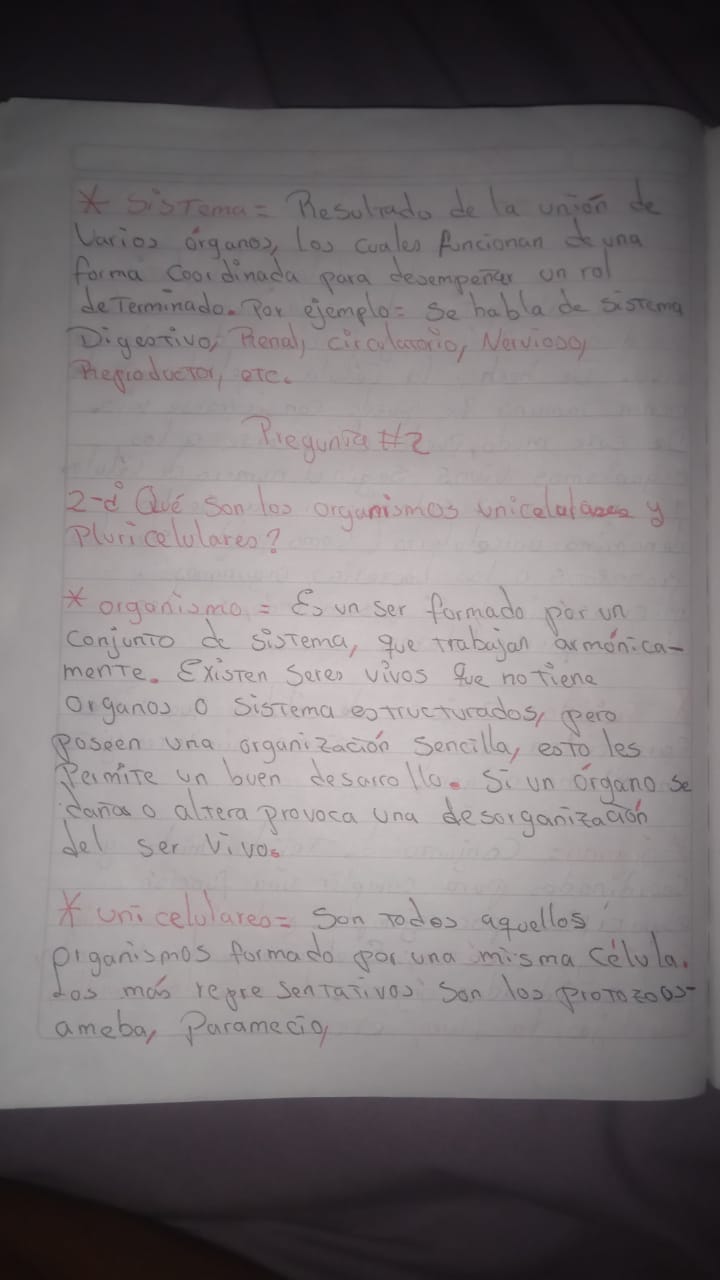 * Sistema = Resultado de la unión de
Varios órganos, los cuales funcionan de una
forma coordinada para desempeñar un rol
determinado. Por ejemplo = Se habla de sistema
Digestivo, Renal, circulatorio, Nervioso,
Reproductor, etc.
Pregunta #2
2-¿ Qué son los organismos unicelulares y
Pluricelulares?
* organismo = Es un ser formado por un
conjunto de sistema, que trabajan armónica-
mente. Existen seres vivos que no tiene
Organos o sistema estructurados, pero
poseen una organización sencilla, esto les
Permite un buen desarrollo. Si un órgano se
daña o altera provoca una desorganización
del ser vivo.
* unicelulares = Son todos aquellos
organismos formado por una misma célula.
Los más representativos son los protozoos-
ameba, Paramecio,